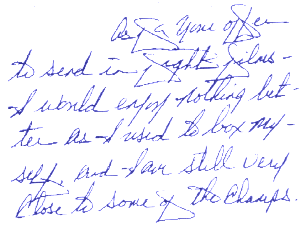 as for some of you
to send in fight films -
I would enjoy nothing bet-
ter as I used to box my-
self, and I am still very
close to some of the champs.